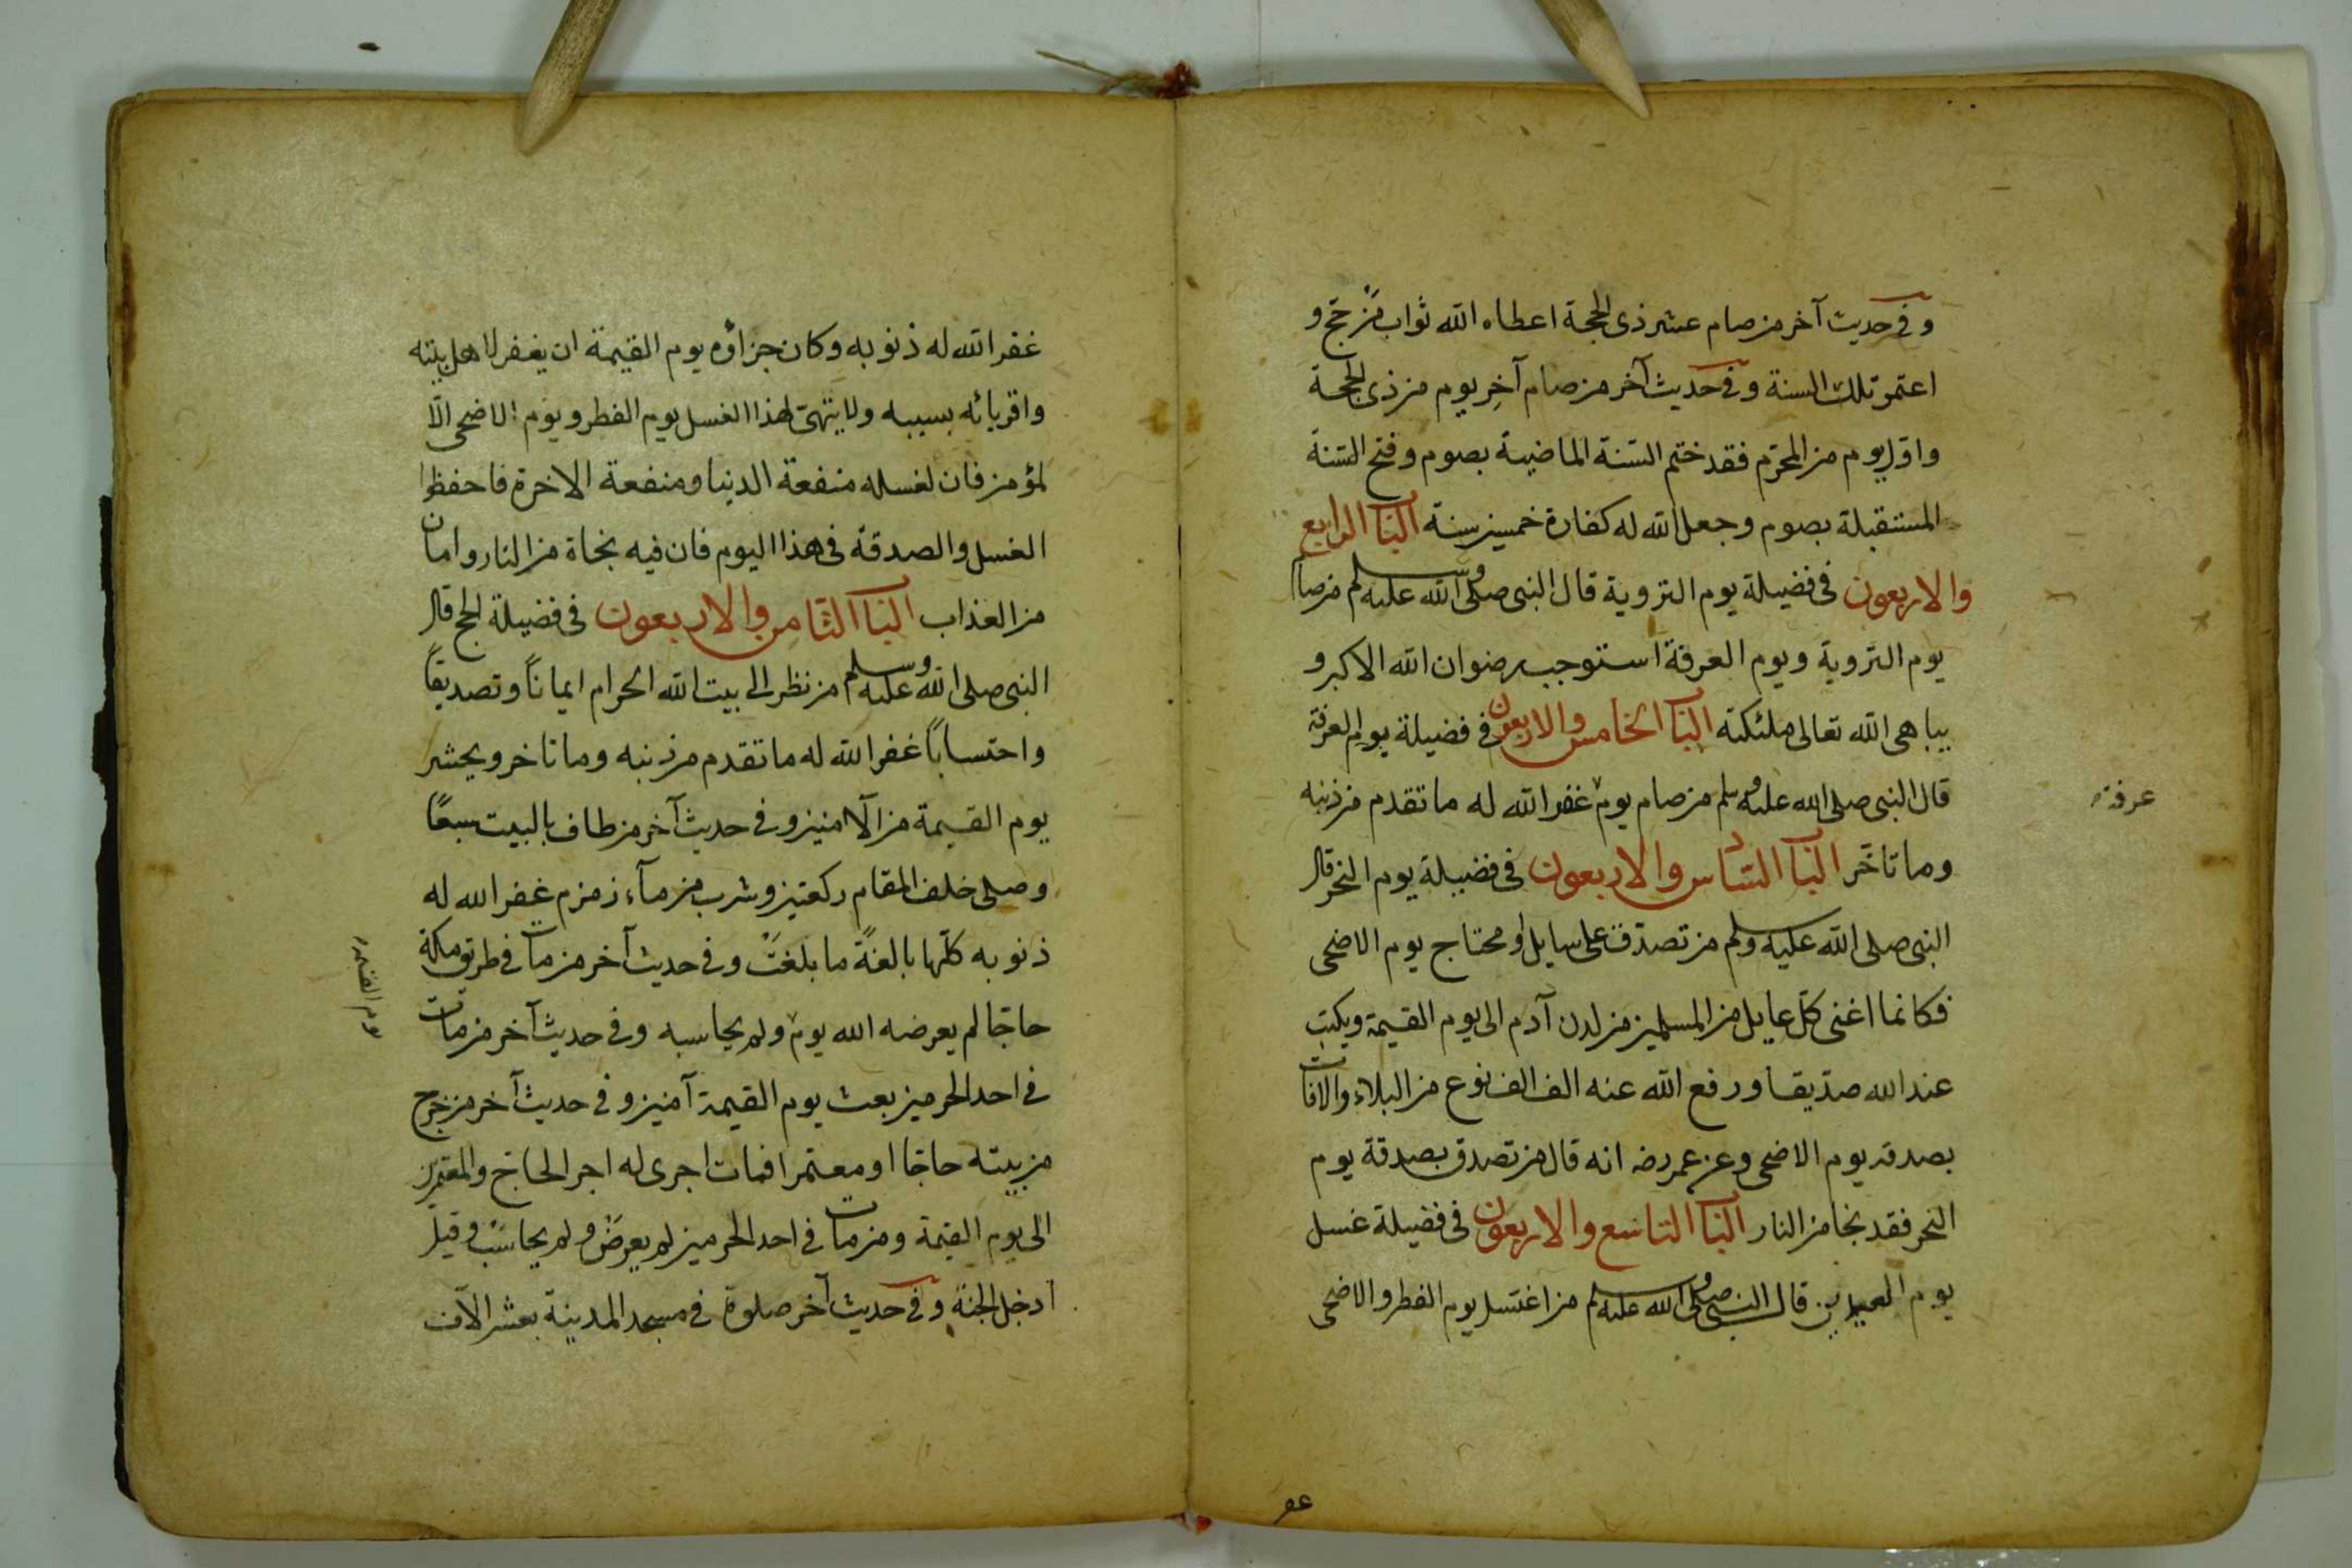 وفى حديث آخر من صام عشر ذى الحجة اعطاه الله ثواب من حج و
اعتمر تلك السنة وفى حديث آخر من صام آخر يوم من ذى الحجة
واول يوم من المحرم فقد ختم السنة الماضية بصوم وفتح السنة
المستقبلة بصوم وجعل الله له كفارة خمسين سنة الباب الرابع
والاربعون فى فضيلة يوم التروية قال النبى صلى الله عليه وسلم من صام
يوم التروية ويوم العرفة استوجب رضوان الله الاكبر و
يباهى الله تعالى ملئكته الباب الخامس والاربعون فى فضيلة يوم العرفة
قال النبى صلى الله عليه وسلم من صام يوم غفر الله له ما تقدم من ذنبه
عرفة
وما تاخر الباب السادس والاربعون فى فضيلة يوم النحر قال
النبى صلى الله عليه وسلم من تصدق على سايل او محتاج يوم الاضحى
فكانما اغنى كل عايل من المسلمين من لدن آدم الى يوم القيمة ويكتب
عند الله صديقا ورفع الله عنه الف الف نوع من البلاء والافات
بصدقة يوم الاضحى وعن عمر رضه انه قال من تصدق بصدقة يوم
النحر فقد نجا من النار الباب التاسع والاربعون فى فضيلة غسل
يوم العيدين قال النبى صلى الله عليه وسلم من اغتسل يوم الفطر والاضحى
غفر
غفر الله له ذنوبه وكان جزاؤه يوم القيمة ان يغفر لاهل بيته
واقربائه بسببه ولا يتهى لهذا الغسل يوم الفطر ويوم الاضحى الا
لمؤمن فان لغسله منفعة الدنيا ومنفعة الاخرة فاحفظوا
الغسل والصدقة فى هذا اليوم فان فيه نجاة من النار وامان
من العذاب الباب الثامن والاربعون فى فضيلة الحج قال
النبى صلى الله عليه وسلم من نظر الى بيت الله الحرام ايمانًا وتصديقًا
واحتسابًا غفر الله له ما تقدم من ذنبه وما تاخر ويحشر
يوم القيمة من الآمنين وفى حديث آخر من طاف بالبيت سبعًا
وصلى خلف المقام ركعتين وشرب من مآء زمزم غفر الله له
ذنوبه كلها بالغةً ما بلغت وفى حديث آخر من مات فى طريق مكة
حاجا لم يعرضه الله يوم ولم يحاسبه وفى حديث آخر من مات
يوم القيمة
فى احد الحرمين بعث يوم القيمة آمنين وفى حديث آخر من خرج
من بيته حاجا او معتمرا فمات اجرى له اجر الحاج والمعتمرين
الى يوم القيمة ومن مات فى احد الحرمين لم يعرض ولم يحاسب وقيل
ادخل الجنة وفى حديث آخر صلوة فى مسجد المدينة بعشر الآف